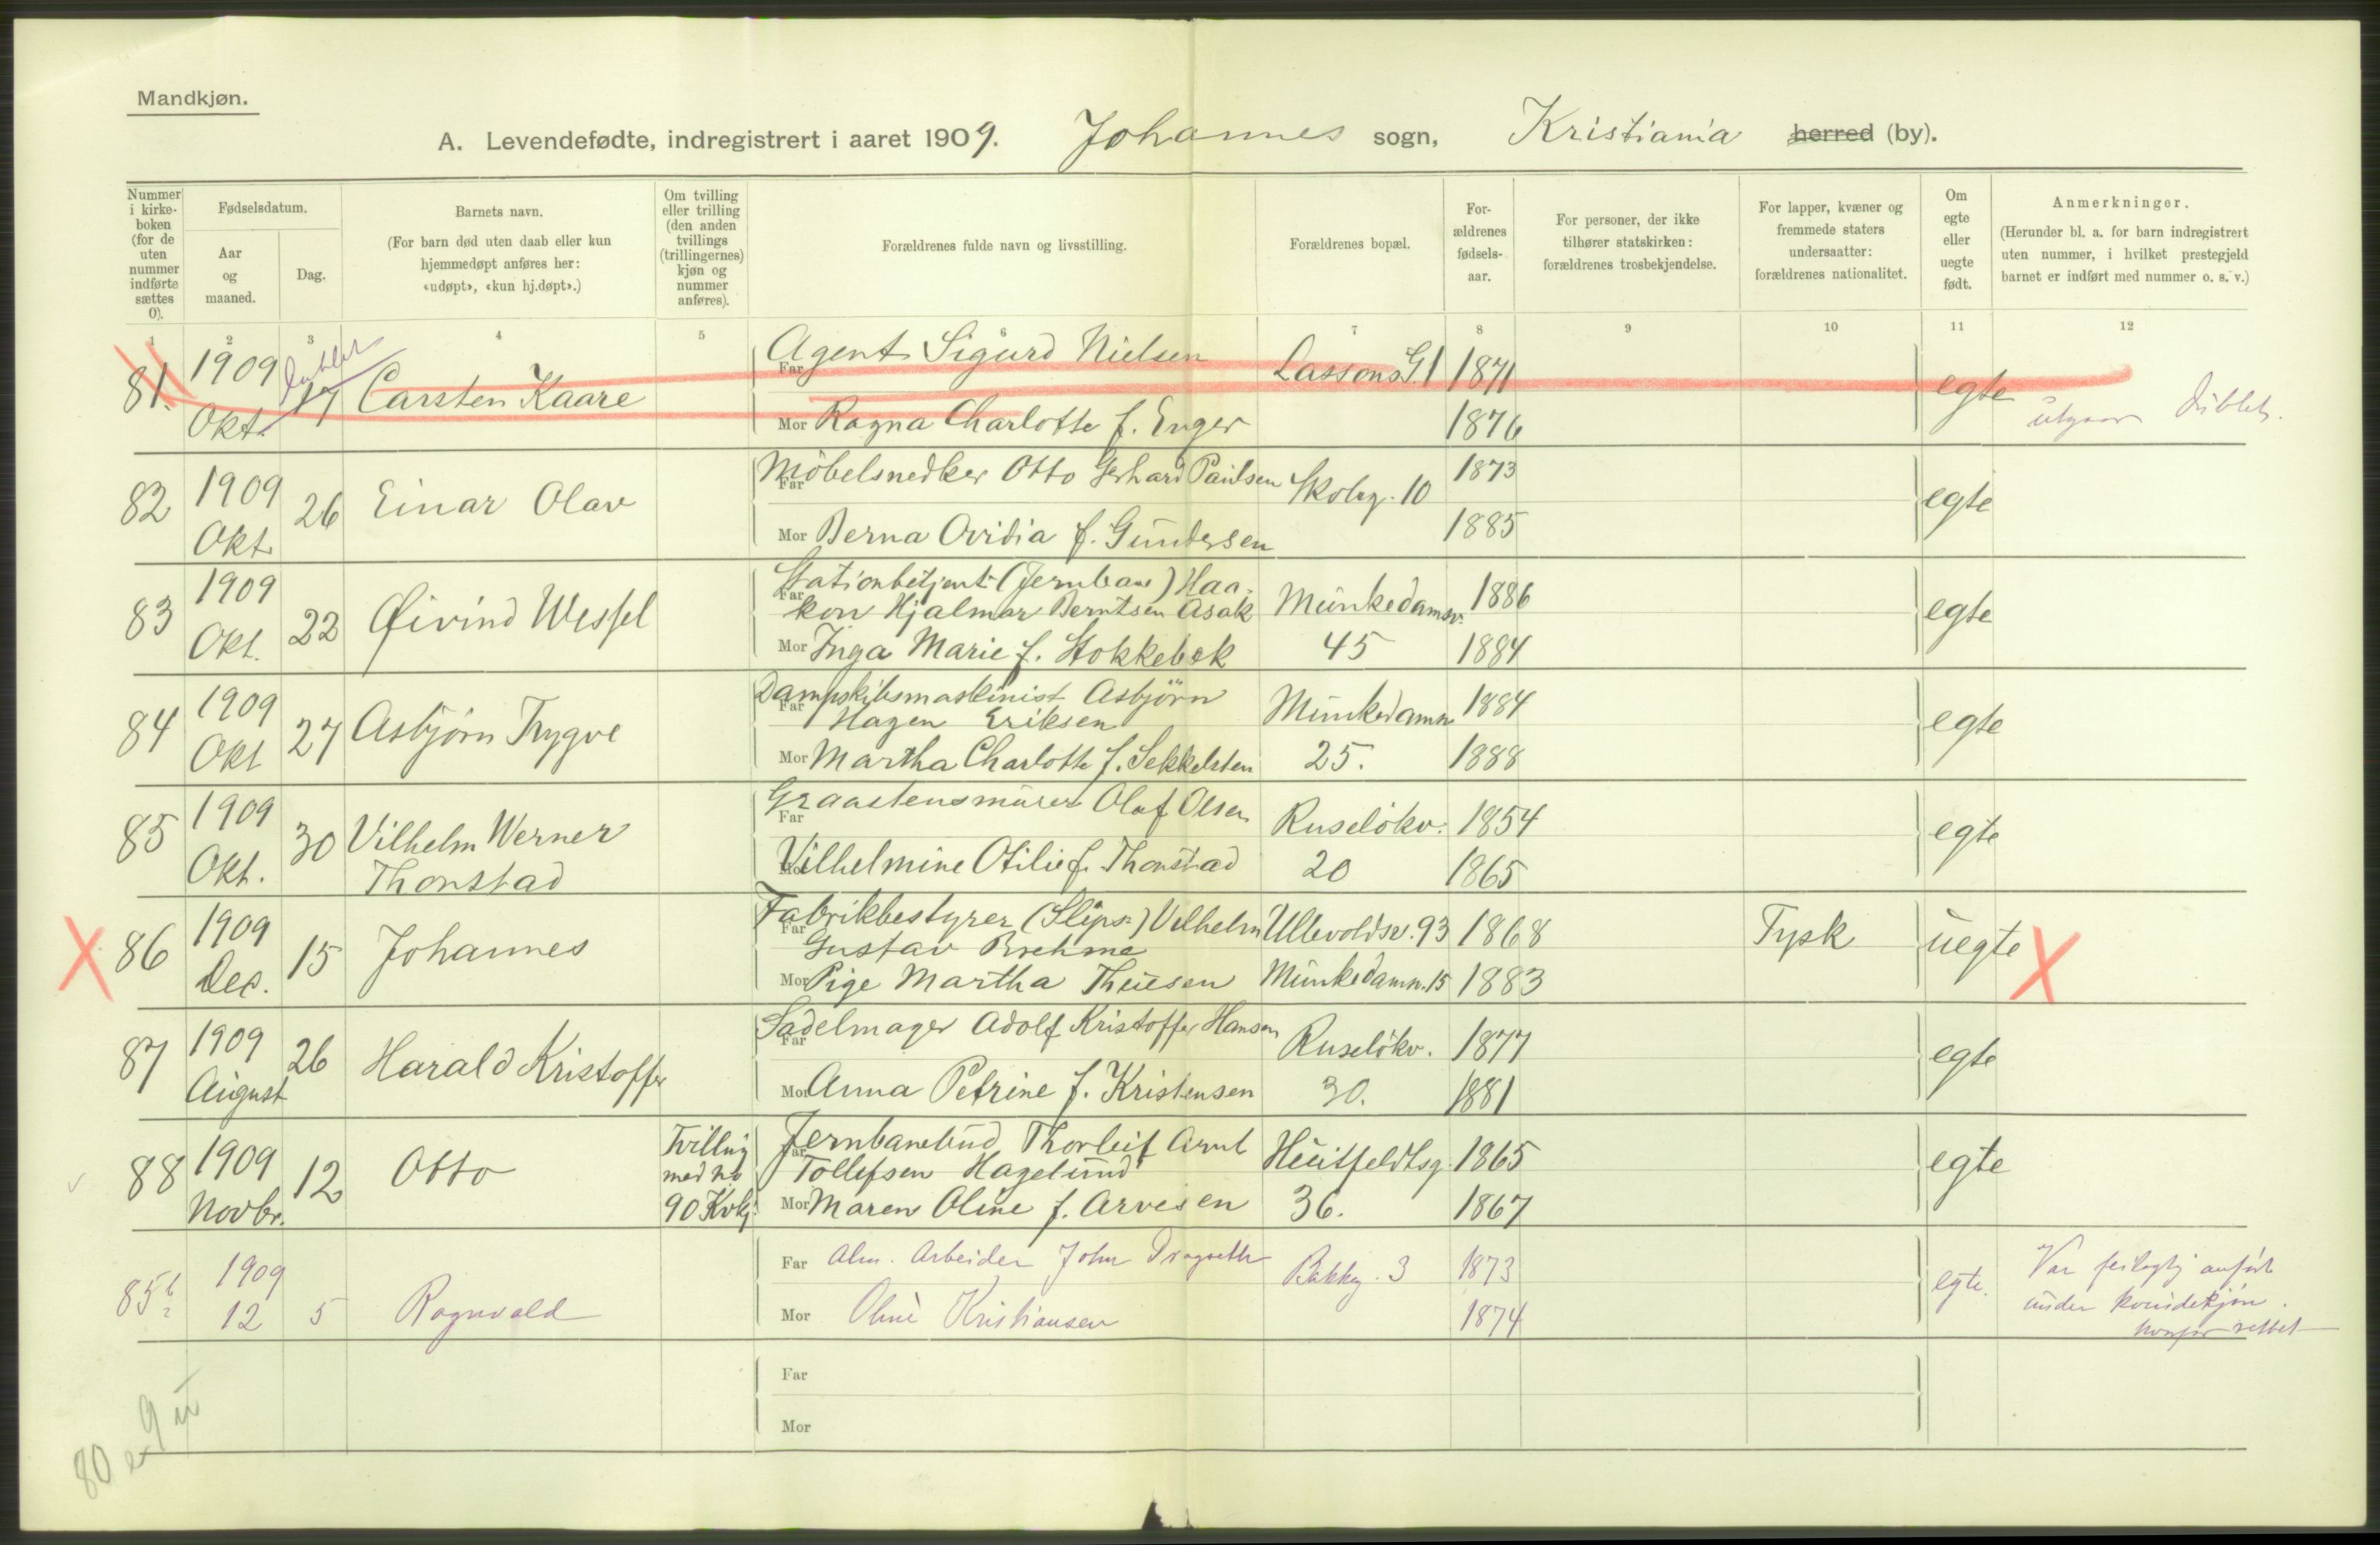 Mandkjøn.
A. Levendefødte, indregistrert i aaret 1909. Johannes sogn, Kristiania herred (by).
Nummer i kirkeboken (for de uten nummer indførte sættes 0).
Fødselsdatum.
Aar og maaned.
Dag.
Barnets navn.
(For barn død uten daab eller kun hjemmedøpt anføres her: «udøpt», «kun hj.døpt».)
Om tvilling eller trilling (den anden tvillings (trillingernes) kjøn og nummer anføres).
Forældrenes fulde navn og livsstilling.
Forældrenes bopæl.
Forældrenes fødselsaar.
For personer, der ikke tilhører statskirken: forældrenes trosbekjendelse.
For lapper, kvæner og fremmede staters undersaatter: forældrenes nationalitet.
Om egte eller uegte født.
Anmerkninger.
(Herunder bl. a. for barn indregistrert uten nummer, i hvilket prestegjeld barnet er indført med nummer o. s. v.)
1 2 3 4 5 6 7 8 9 10 11 12
81. 1909 Okt. 17 Carsten Kaare
Far Agent Sigurd Nielsen Lassons G. 1 1871 egte utgaar Dublet.
Mor Ragna Charlotte f. Enger 1876
82 1909 Okt. 26 Einar Olav
Far Möbelsnedker Otto Gerhard Paulsen Skoleg. 10 1873 egte
Mor Berna Ovidia f. Gundersen 1885
83 1909 Okt. 22 Øivind Wessel
Far Stationbetjent (Jernbane) Haa-
kon Hjalmar Berntsen Asak Munkedamsv. 1886 egte
Mor Inga Marie f. Stokkebek 45 1884
84 1909 Okt 27 Asbjörn Trygve
Far Dampskibsmaskinist Asbjörn
Hagen Eriksen Munkedamsv. 1884 egte
Mor Martha Charlotte f. Sekkelsten 25. 1888
85 1909 Okt. 30 Vilhelm Werner
Thonstad
Far Graastensmurer Olaf Olsen Ruselökv. 1854 egte
Mor Vilhelmine Otilie f. Thonstad 20 1865
X 86 1909 Dec. 15 Johannes
Far Fabrikbestyrer (Slips=) Vilhelm
Gustav Brehme Ullevoldsv. 93 1868 Tysk uegte X
Mor Pige Martha Thuesen Munkedamsv. 15 1883
87 1909 August 26 Harald Kristoffer
Far Sadelmager Adolf Kristoffer Hansen Ruselökv. 1877 egte
Mor Anna Petrine f. Kristensen 30. 1881
88 1909 Novbr. 12 Otto
Tvilling
med no
90 Kvkj.
Far Jernbanebud Thorleif Arnt
Tollefsen Hagelund Huitfeldtsg. 1865 egte
Mor Maren Oline f. Arvesen 36. 1867
85b 1909 12 5 Ragnvald
Far Alm. Arbeider John Dragseth Bakkeg. 3 1873 egte.
Mor Oline Kristiansen 1874
Var feilagtig anført
under kvindekjøn.
rettet
Far
Mor
80